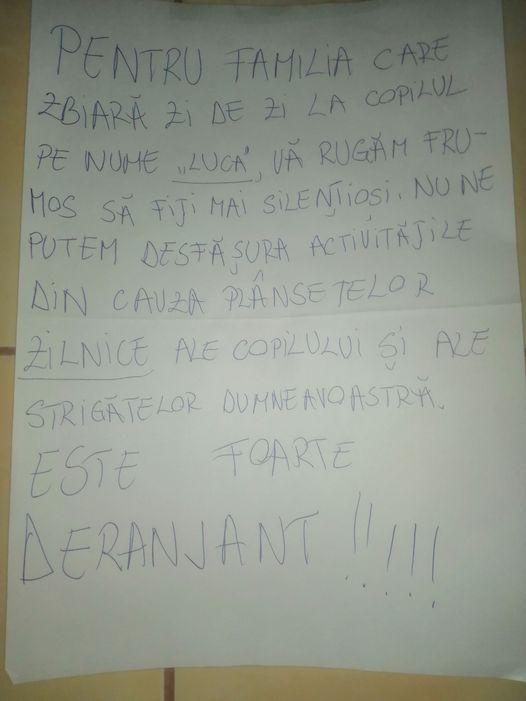 PENTRU FAMILIA CARE
ZBIARĂ ZI DE ZI LA COPILUL
PE NUME „LUCA”, VĂ RUGĂM FRU-
MOS SĂ FIȚI MAI SILENȚIOSI. NU NE
PUTEM DESFĂȘURA ACTIVITĂȚILE
DIN CAUZA PLÂNSETELOR
ZILNICE ALE COPILULUI ȘI ALE
STRIGĂTELOR DUMNEAVOASTRĂ.
ESTE FOARTE
DERANJANT !!!!!